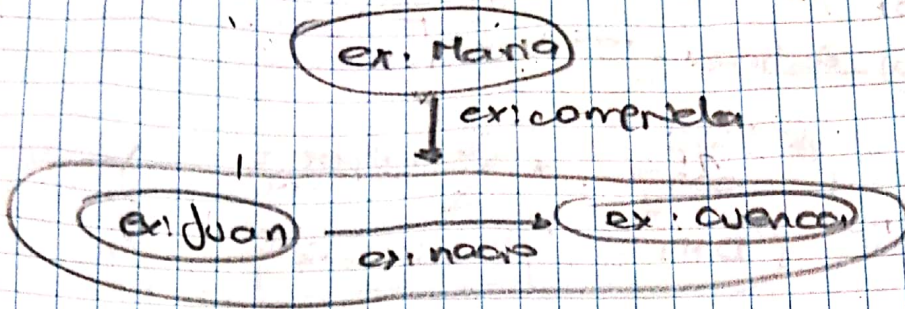 ex: Maria
ex: comenta
ex: Juan
ex: nacio
ex: cuenca